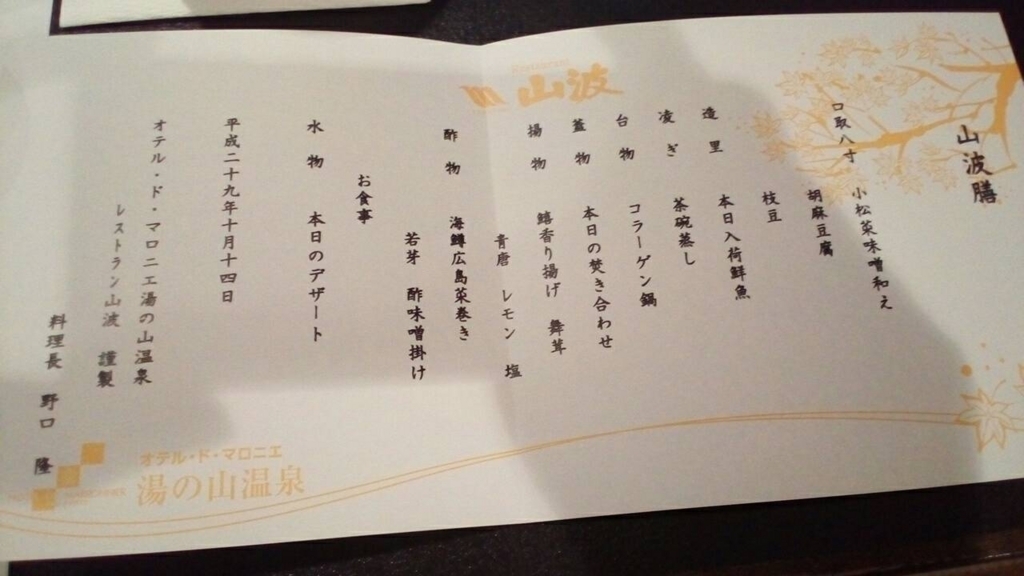 山波膳
口取八寸 小松菜味噌和え
胡麻豆腐
枝豆
造里 本日入荷鮮魚
凌ぎ 茶碗蒸し
台物 コラーゲン鍋
蓋物 本日の焚き合わせ
揚物 鱚香り揚げ 舞茸
青唐 レモン 塩
酢物 海鱒広島菜巻き
若芽 酢味噌掛け
お食事
水物 本日のデザート
平成二十九年十月十四日
オテル・ド・マロニエ湯の山温泉
レストラン山波 謹製
料理長 野口 隆
山波
オテル・ド・マロニエ
湯の山温泉